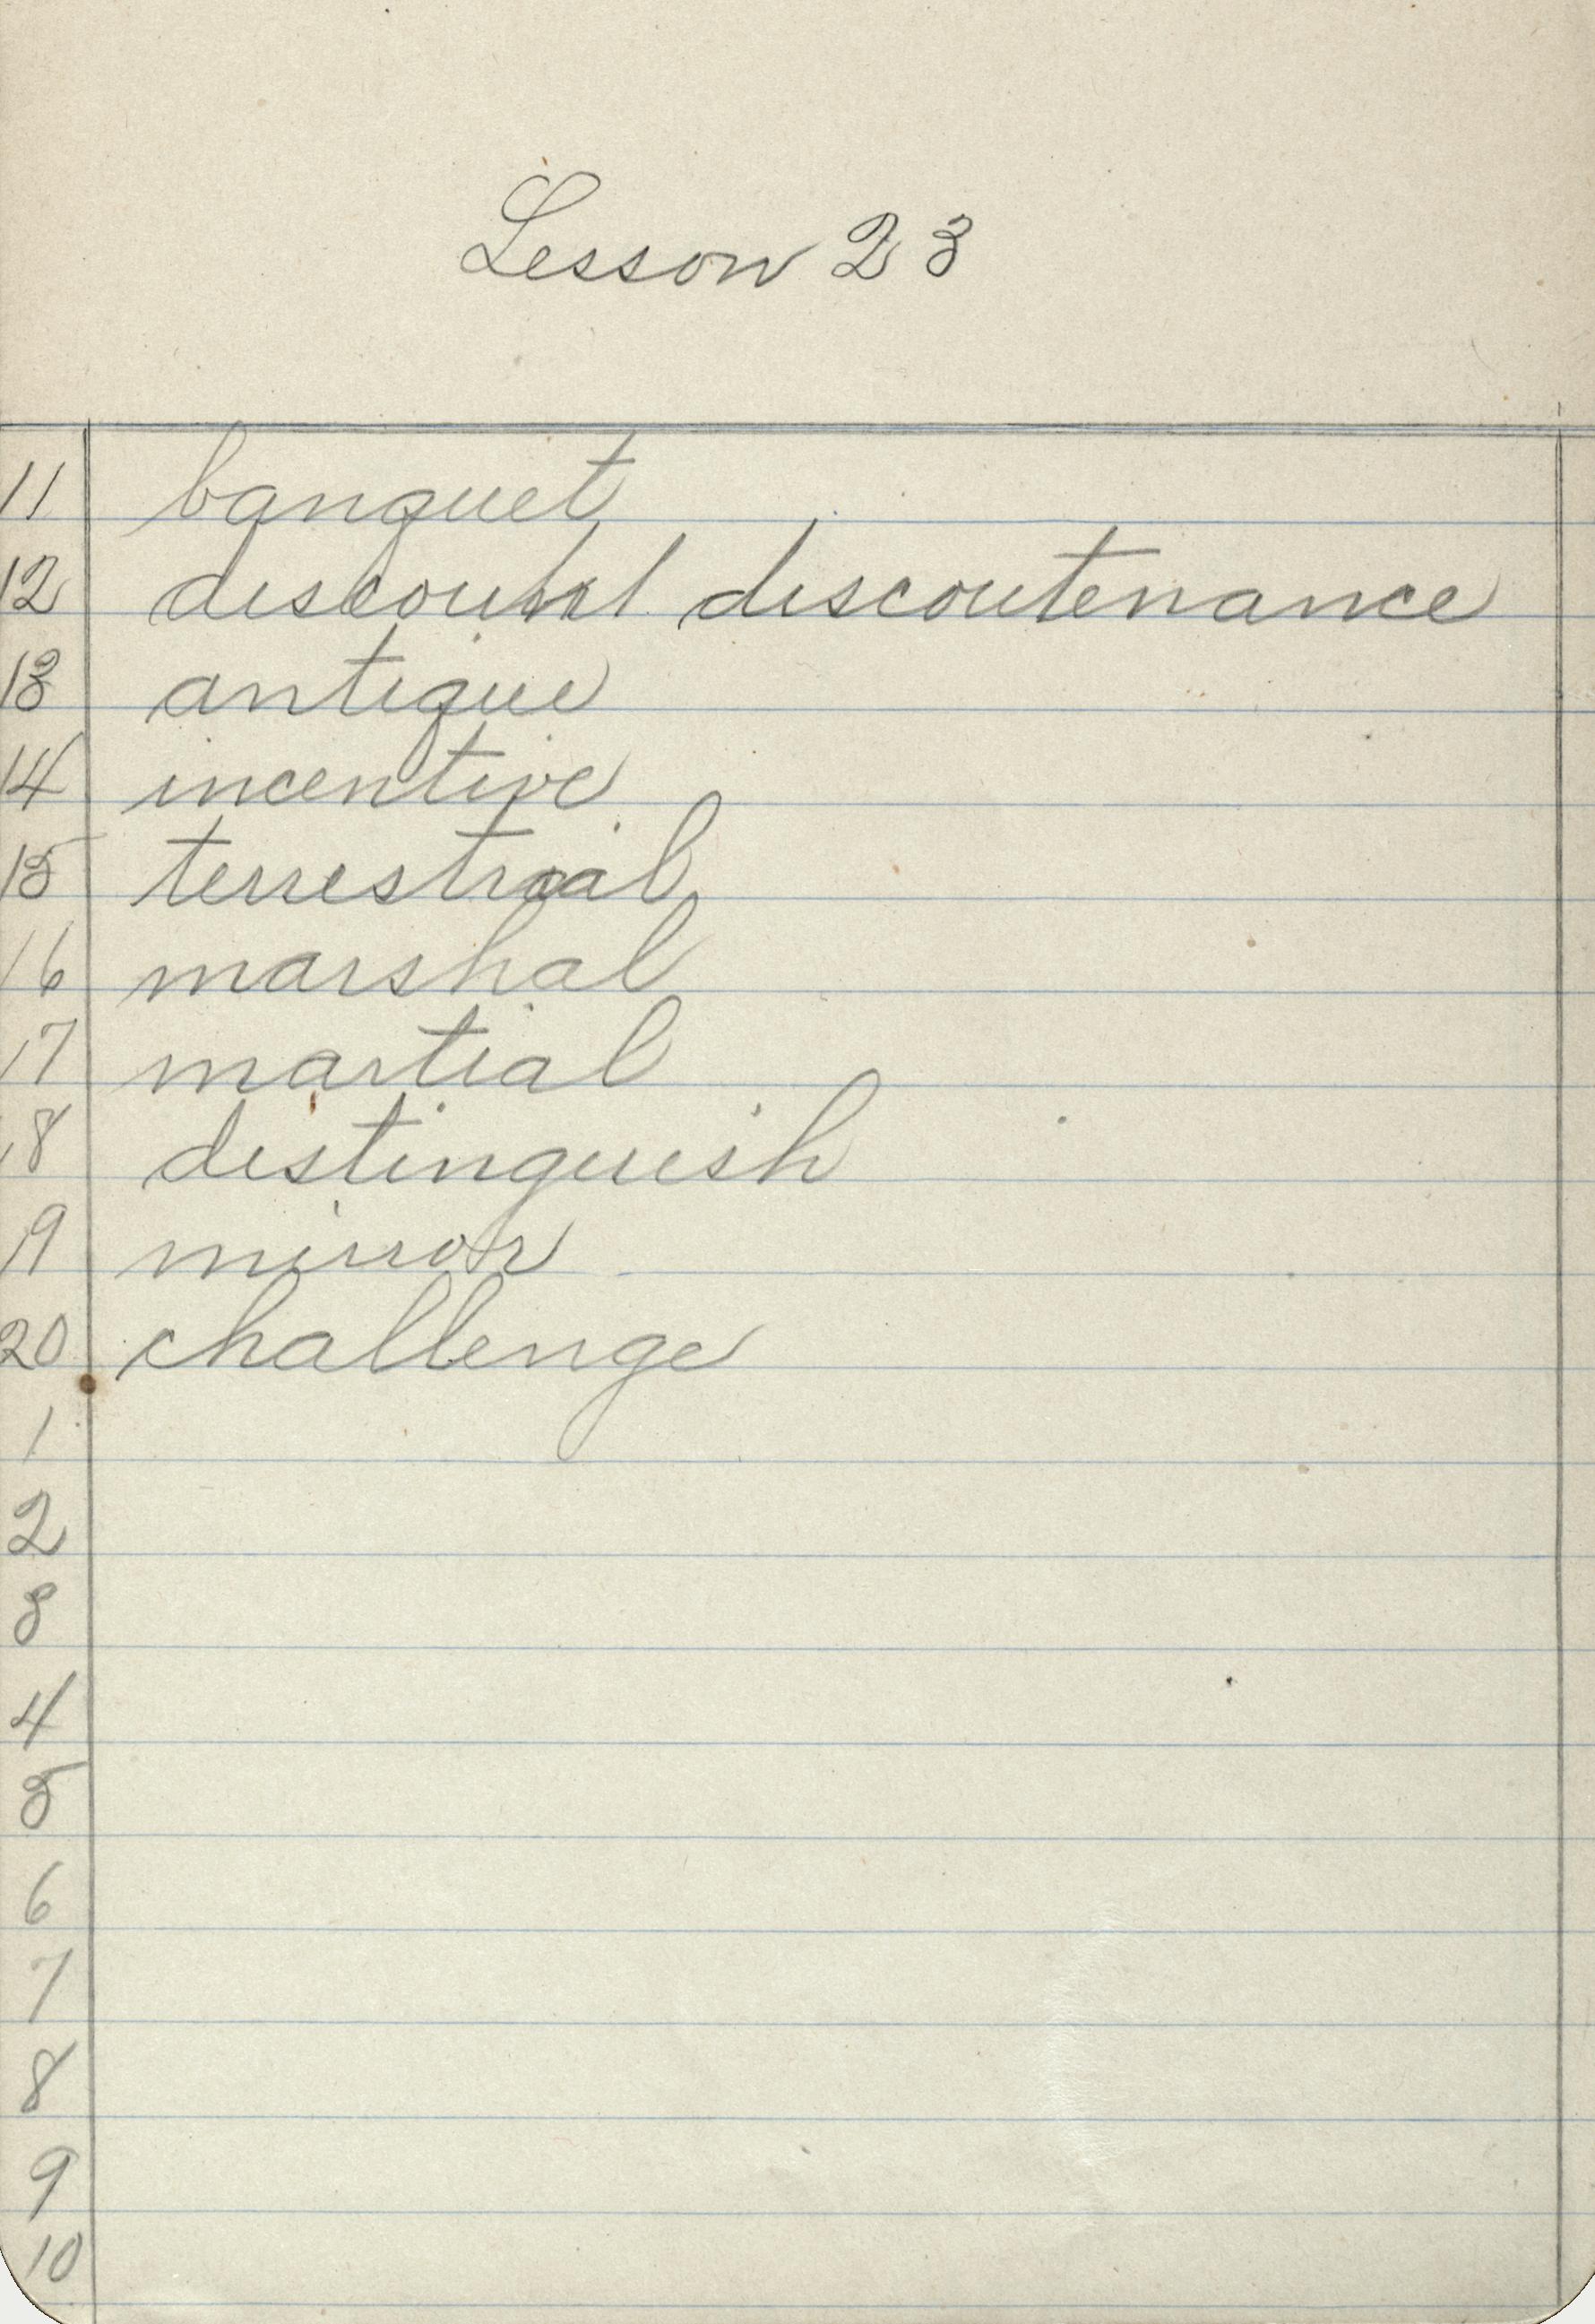 Lesson 23
11 banquet
12 discoutenance
13 antique
14 incentive
15 terrestrial
16 marshal
17 martial
18 distinguish
19 mirror
20 challenge
1
2
3
4
5
6
7
8
9
10